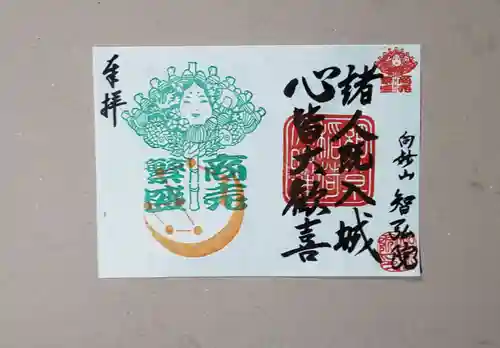 向部山 智弘院
諸人既入城
心皆大歓喜
商売
繁盛
奉拝